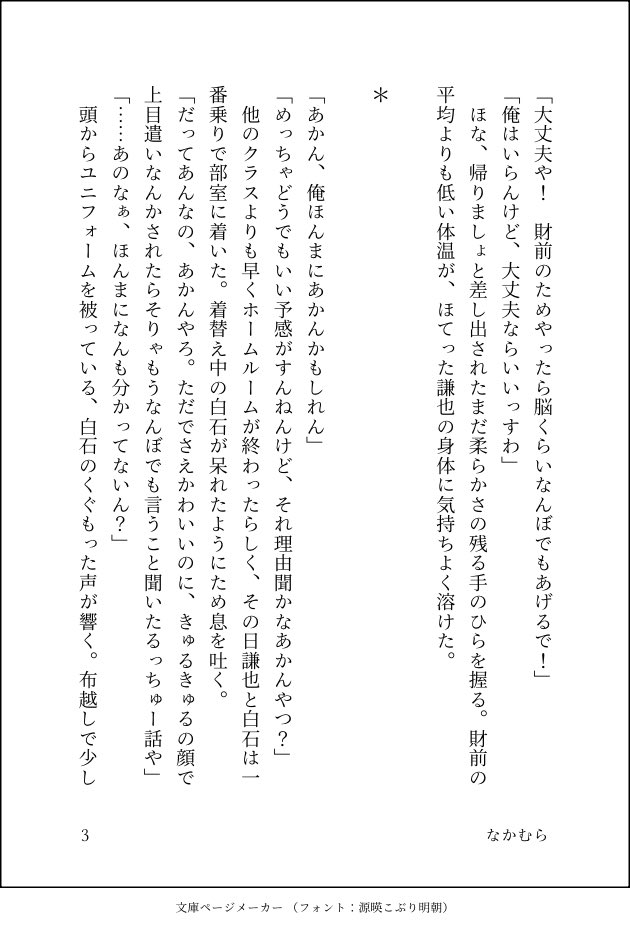 「大丈夫や！　財前のためやったら脳くらいなんぼでもあげるで！」
「俺はいらんけど、大丈夫ならいいっすわ」
　ほな、帰りましょと差し出されたまだ柔らかさの残る手のひらを握る。財前の
平均よりも低い体温が、ほてった謙也の身体に気持ちよく溶けた。
＊
「あかん、俺ほんまにあかんかもしれん」
「めっちゃどうでもいい予感がすんねんけど、それ理由聞かなあかんやつ？」
　他のクラスよりも早くホームルームが終わったらしく、その日謙也と白石は一
番乗りで部室に着いた。着替え中の白石が呆れたようにため息を吐く。
「だってあんなの、あかんやろ。ただでさえかわいいのに、きゅるきゅるの顔で
上目遣いなんかされたらそりゃもうなんぼでも言うこと聞いたるっちゅー話や」
「……あのなぁ、ほんまになんも分かってないん？」
　頭からユニフォームを被っている、白石のくぐもった声が響く。布越しで少し
なかむら
3
文庫ページメーカー （フォント：源暎こぶり明朝）